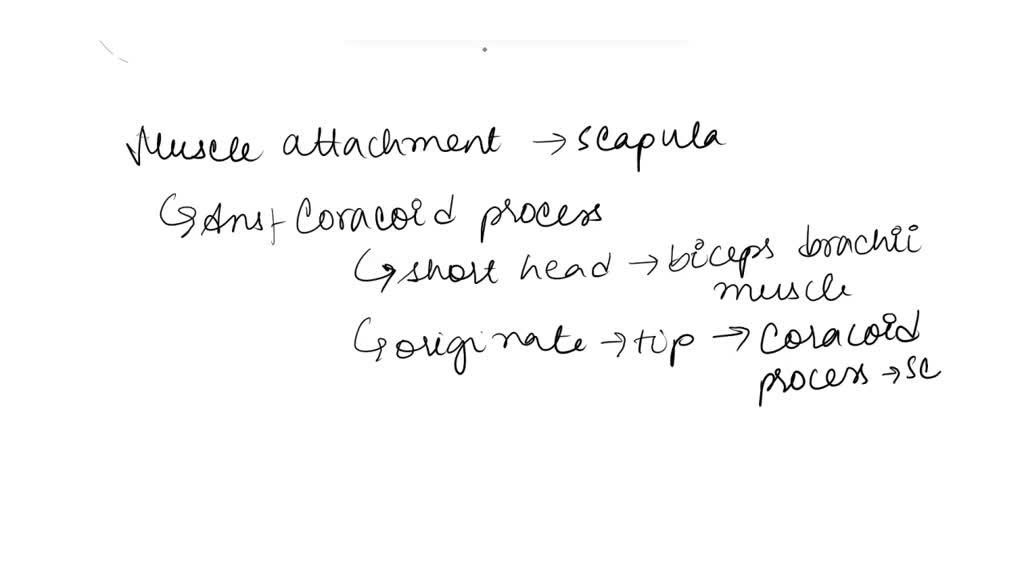 Muscle attachment → scapula
↳ Ans+ Coracoid process
↳ short head → biceps brachii
muscle
↳ originate → tip → coracoid
process → sc